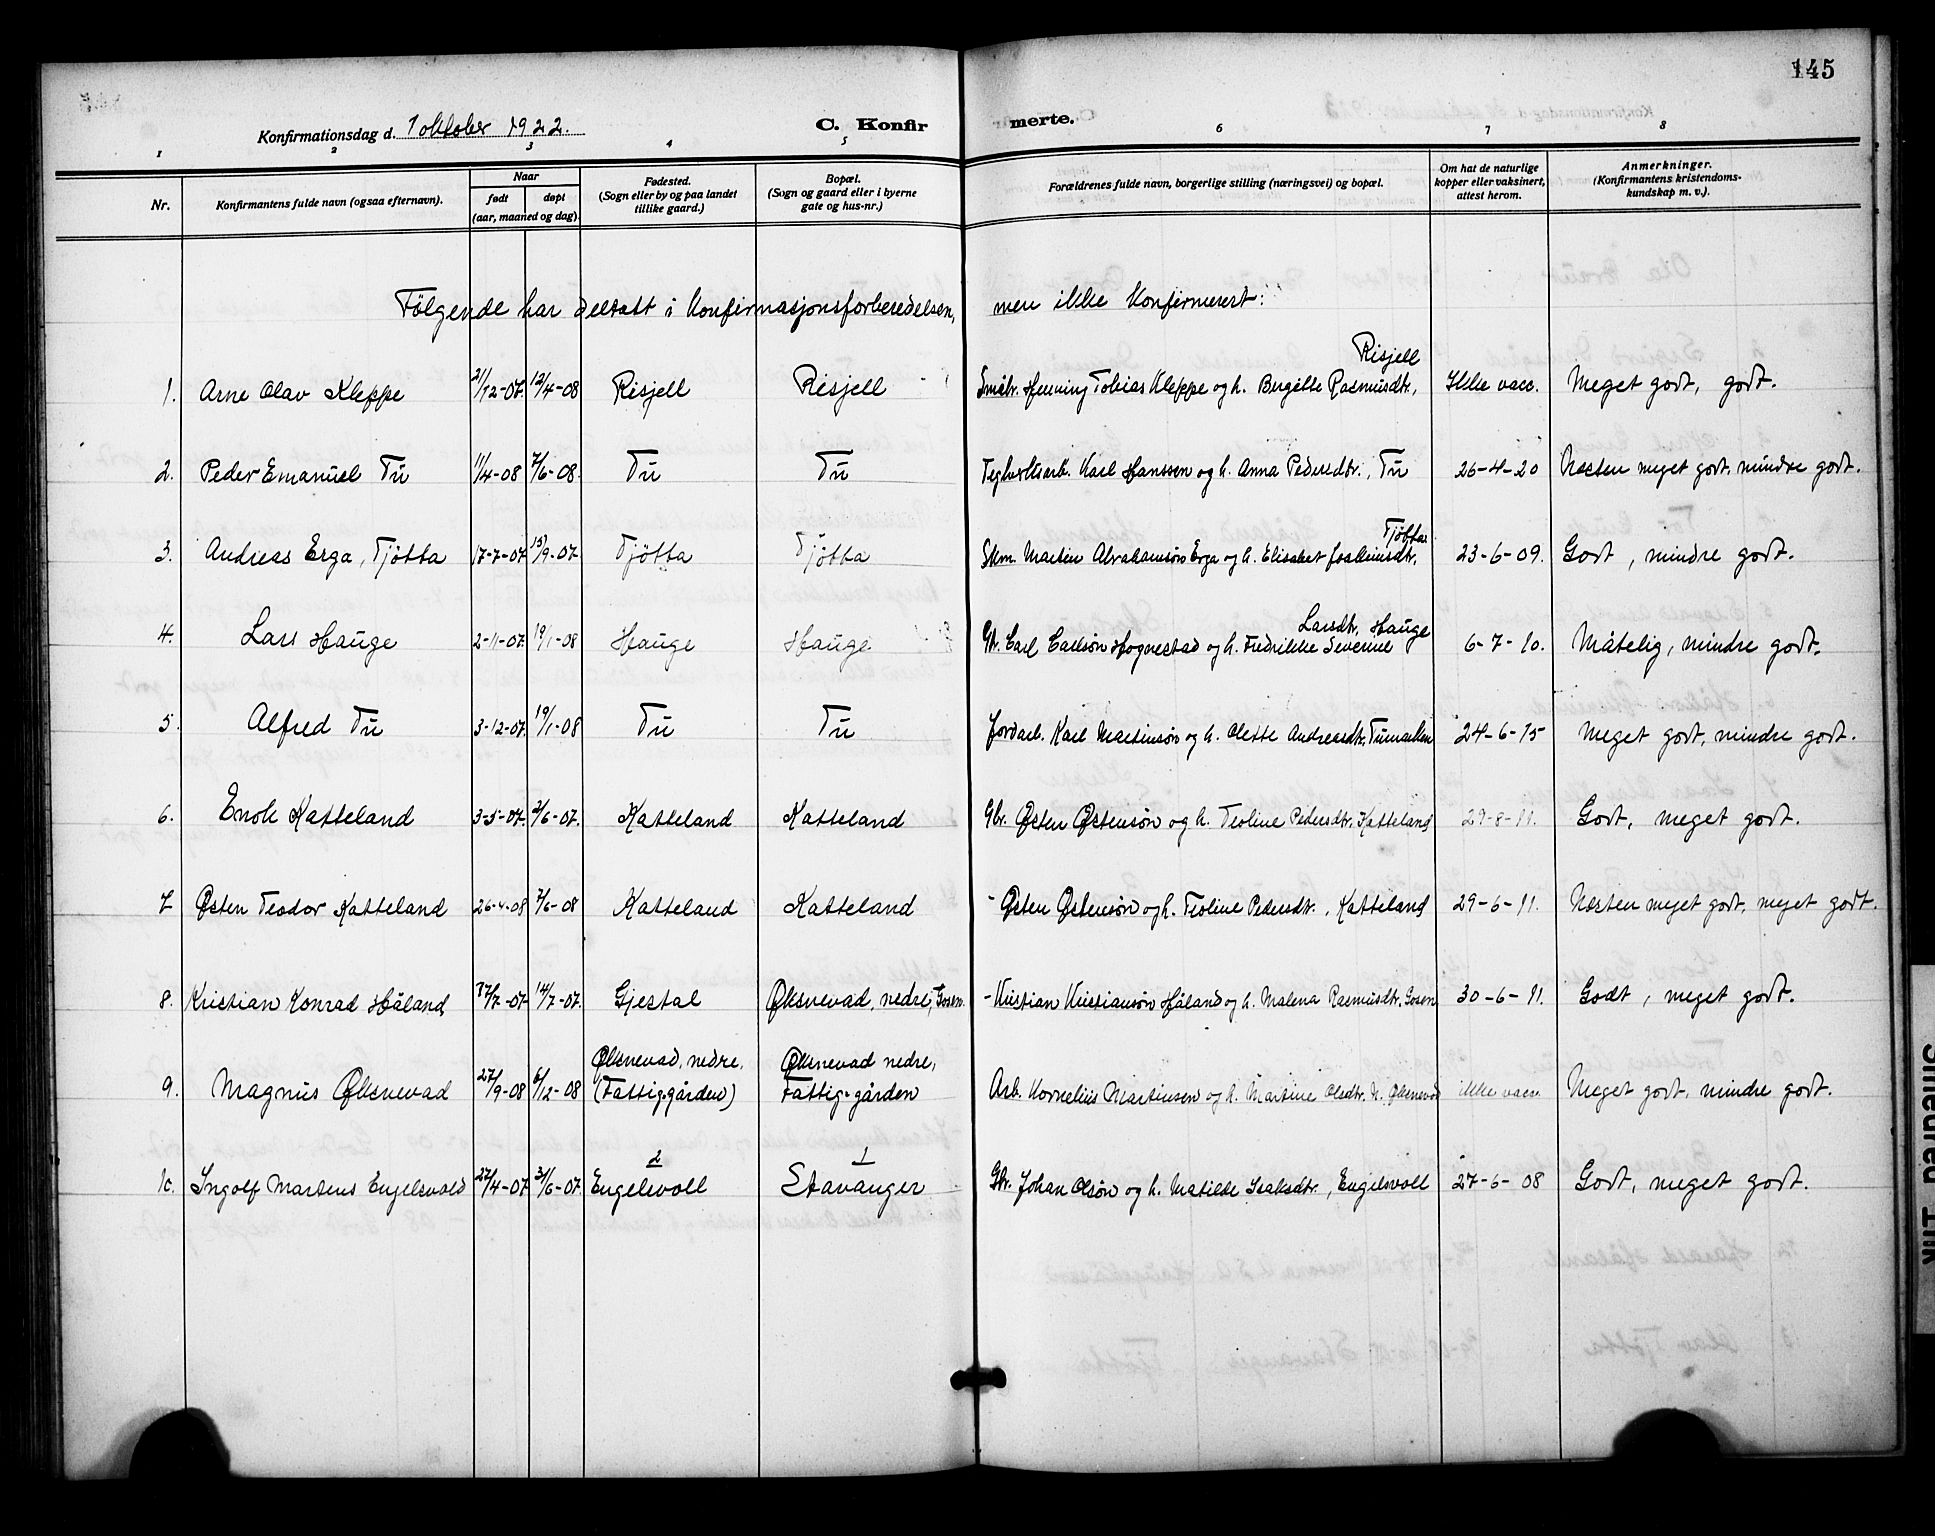 145
Konfirmationsdag d. 1 oktober 1922.
C. Konfirmerte.
1 2 3 4 5 6 7 8
Nr.
Konfirmantens fulde navn (ogsaa efternavn).
Naar
født døpt
(aar, maaned og dag)
Fødested.
(Sogn eller by og paa landet
tillike gaard.)
Bopæl.
(Sogn og gaard eller i byerne
gate og hus-nr.)
Forældrenes fulde navn, borgerlige stilling (næringsvei) og bopæl.
Om hat de naturlige
kopper eller vaksinert,
attest herom.
Anmerkninger.
(Konfirmantens kristendoms-
kundskap m. v.).
Følgende har deltatt i konfirmasjonsforberedelsen, men ikke konfirmert:
1. Arne Olav Kleppe 21/12-07. 12/4-08 Risjell Risjell Småbr. Henning Tobias Kleppe og h. Bergitte Rasmusdtr., Risjell Ikke vacc. Meget godt, godt.
2. Peder Emanuel Tu 11/4-08 7/6-08. Tu Tu Teglverksarb. Karl Hanssen og h. Anna Pedersdtr., Tu 26-4-20 Næsten meget godt, mindre godt.
3. Andreas Erga, Tjøtta 17-7-07. 15/9-07. Tjøtta Tjøtta Skm. Martin Abrahamsøn Erga og h. Elisabet Joakimsdtr. Tjøtta 23-6-09. Godt, mindre godt.
4. Lars Hauge 2-11-07. 19/1-08 Hauge Hauge Gbr. Carl Carlsøn Hognestad og h. Fredrikke Severine Larsdtr. Hauge 6-7-10. Måtelig, mindre godt.
5. Alfred Tu 3-12-07. 19/1-08 Tu Tu Jordarb. Karl Martinsøn og h. Olette Andreasdtr. Tumarken 24-6-15 Meget godt, mindre godt.
6. Enok Katteland 3-5-07. 2/6-07. Katteland Katteland Gbr. Østen Østensøn og h. Teoline Pedersdtr. Katteland 29-8-11. Godt, meget godt.
7 Østen Teodor Katteland 26-4-08 7/6-08 Katteland Katteland - Østen Østensøn og h. Teoline Pedersdtr., Katteland 29-6-11. Næsten meget godt, meget godt.
8. Kristian Konrad Håland 14/7-07. Gjestal Øksnevad, nedre, Gosen. - Kristian Kristiansøn Håland og h. Malena Rasmusdtr. Gosen 30-6-11. Godt, meget godt.
9. Magnus Øksnevad 27/9-08 6/12-08 Øksnevad, nedre. (Fattig-gården) Øksnevad nedre, Fattig-gården Arb. Kornelius Martinsen og h. Martine Olsdtr. N. Øksnevad ikke vacc. Meget godt, mindre godt.
10. Ingolf Martens Engelsvold 27/4-07. Engelsvoll 2 Stavanger 1 Gbr. Johan Olsøn og h. Matilde Isaksdtr., Engelsvoll 27-6-08 Godt, meget godt.